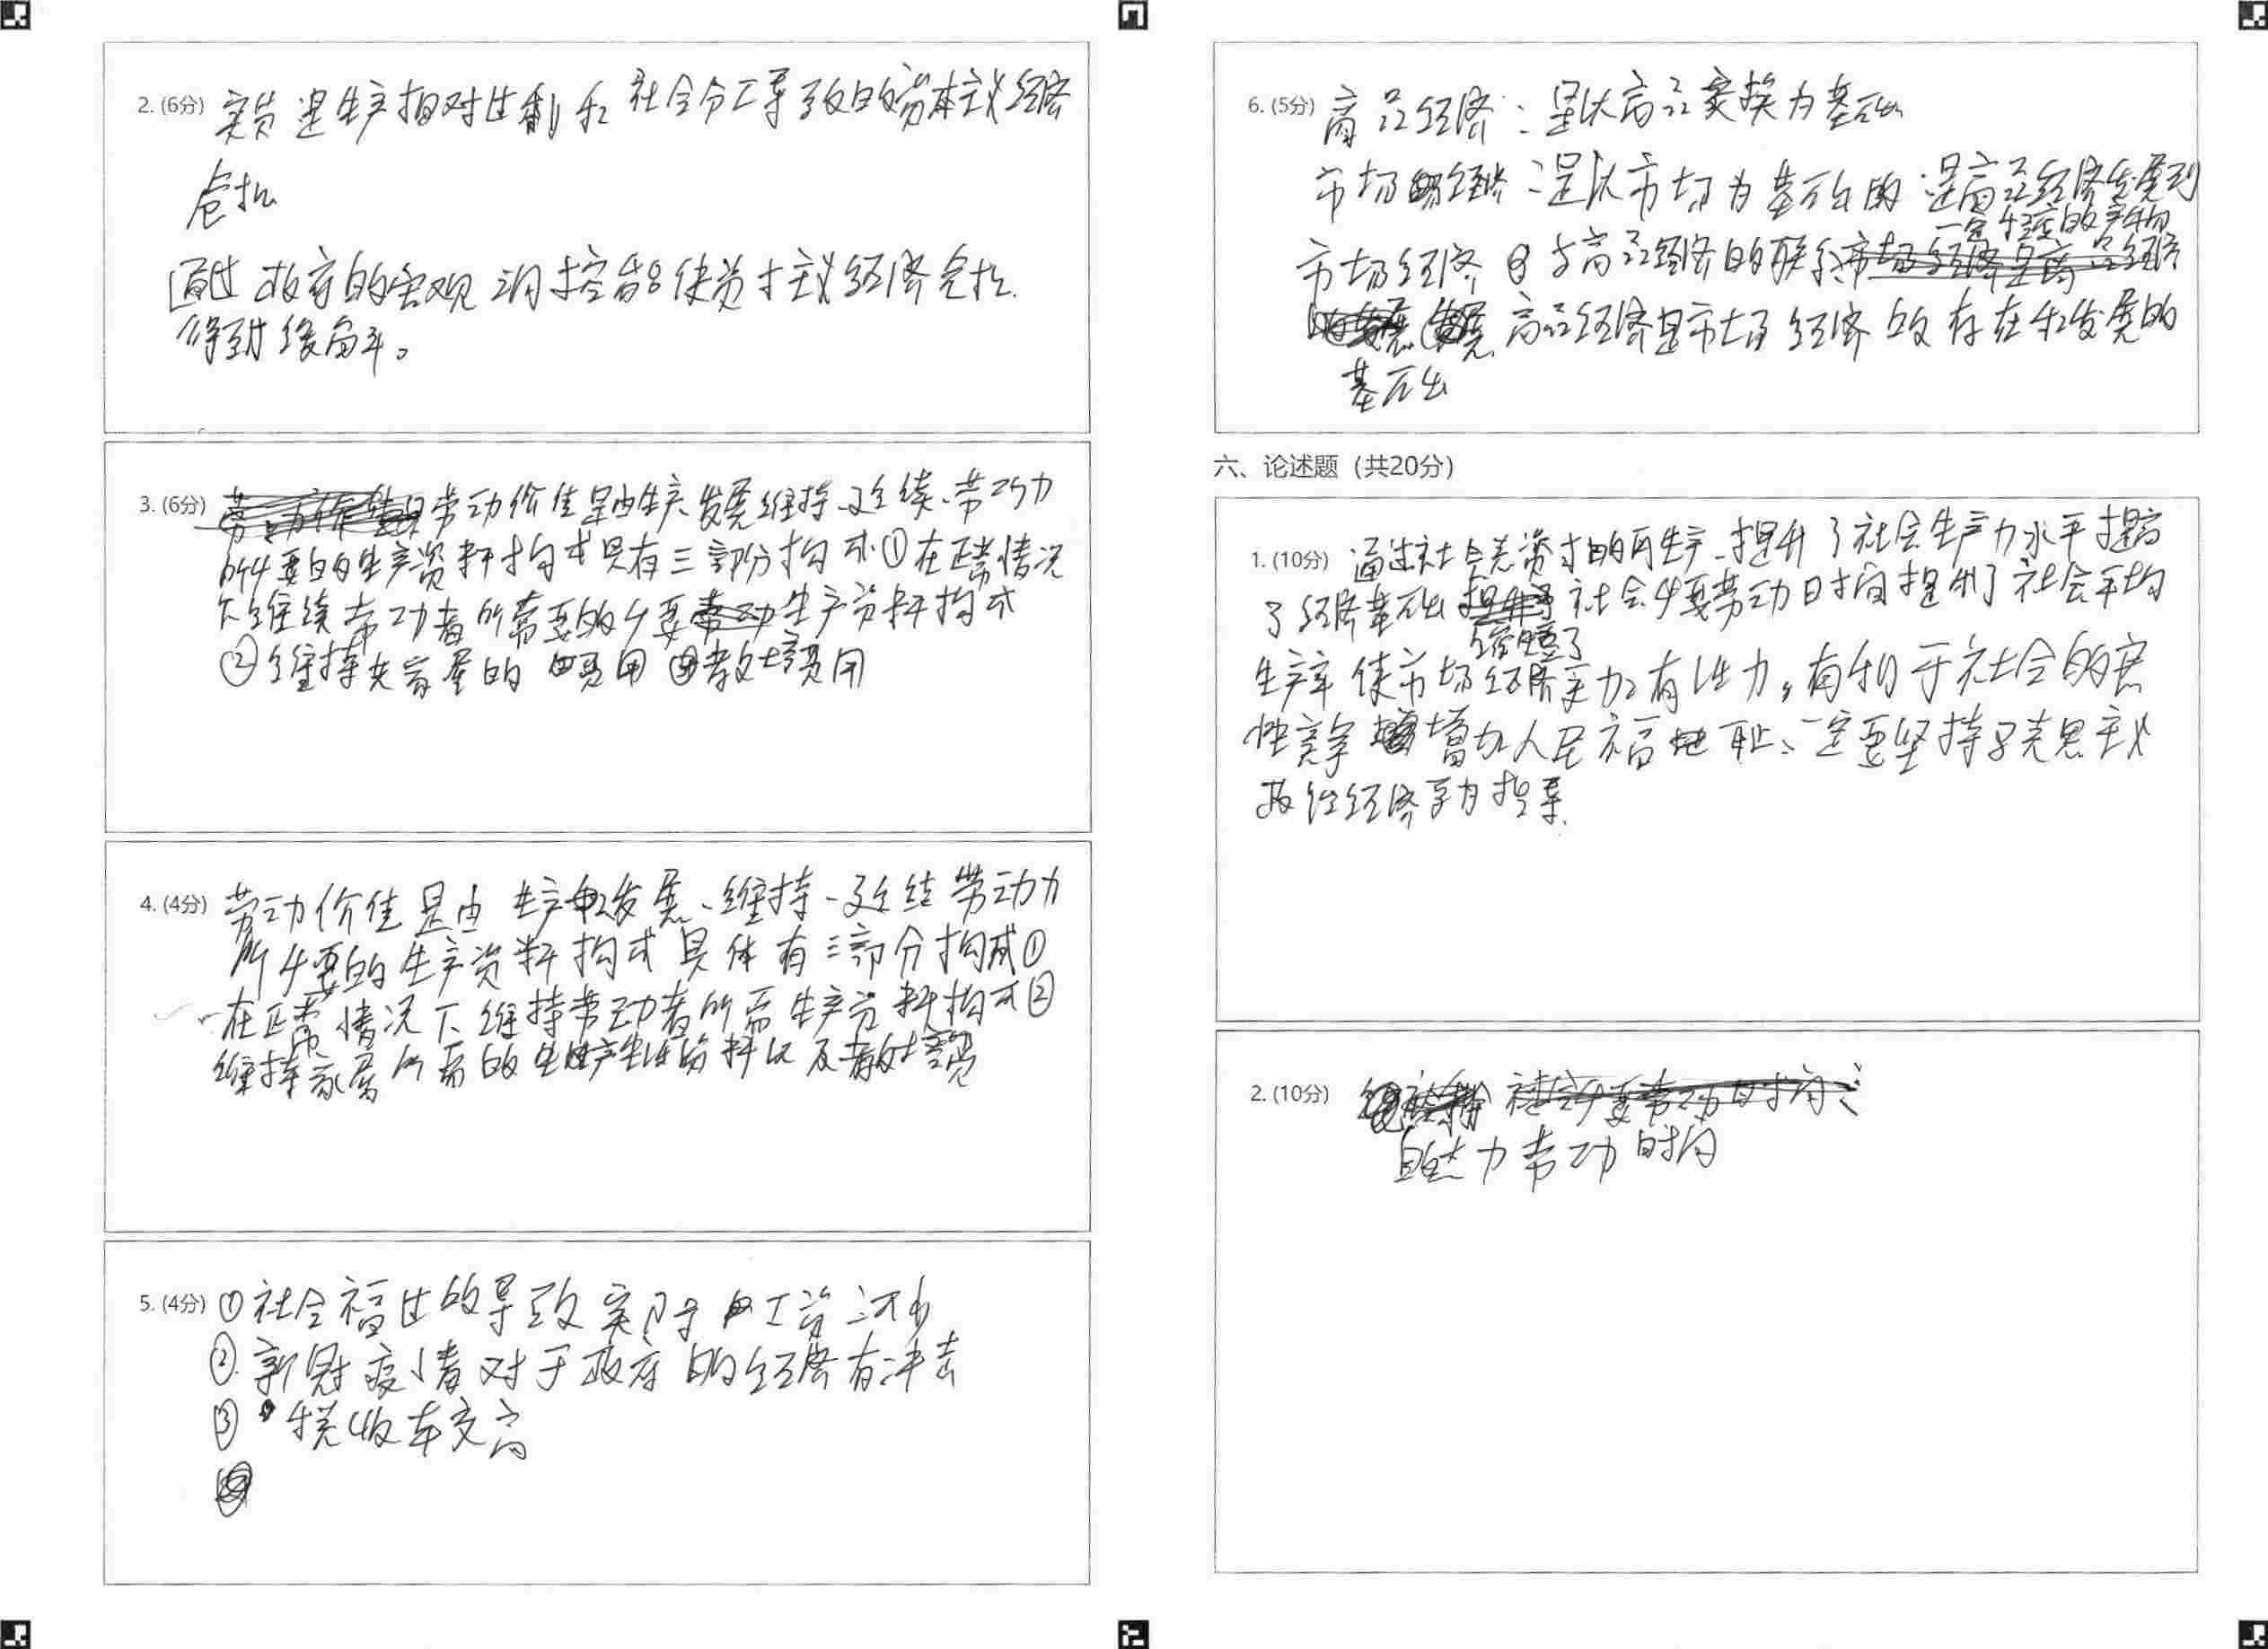 2. (6分) 实质是生产相对过剩和社会分工导致的资本主义经济
危机
通过政府的宏观调控能使资本主义经济危机
得到缓解。
3. (6分) 劳动价值是由生产、发展、维持、延续、劳动力
所必要的生产资料构成具有三部分构成①在正常情况
下维续劳动者所需要的必要生产资料构成
②维持其家属的费用③教培费用
4. (4分) 劳动价值是由生产和发展、维持、延续劳动力
所必要的生产资料构成具体有三部分构成①
在正常情况下维持劳动者所需生产资料构成②
维持家属所需的生产生活资料以及教培费
5. (4分) ①社会福过的导致实际工资减少
②新冠疫情对于政府的经济有冲击
③税收率交高
6. (5分) 商品经济：是以商品交换为基础
市场经济：是以市场为基础的是商品经济发展到
一定程度的产物
市场经济与商品经济的联系
商品经济是市场经济的存在和发展的
基础
六、论述题（共20分）
1. (10分) 通过社会总资本的再生产、提升了社会生产力水平提高
了经济基础缩短了社会必要劳动时间提升了社会平均
生产率使市场经济更加有活力，有利于社会的
增加人民福祉、一定要坚持马克思主义
政治经济学为指导.
2. (10分)
自然力劳动时间